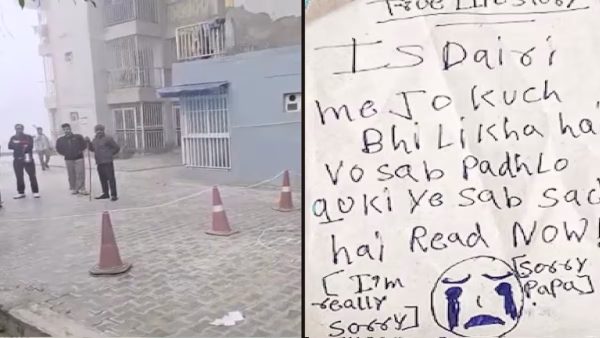 True Life Story
Is Dairi
me Jo Kuch
Bhi Likha hai
Vo sab Padhlo
quki Ye sab sac
hai Read NOW!
[I'm
really
sorry]
[sorry
Papa]